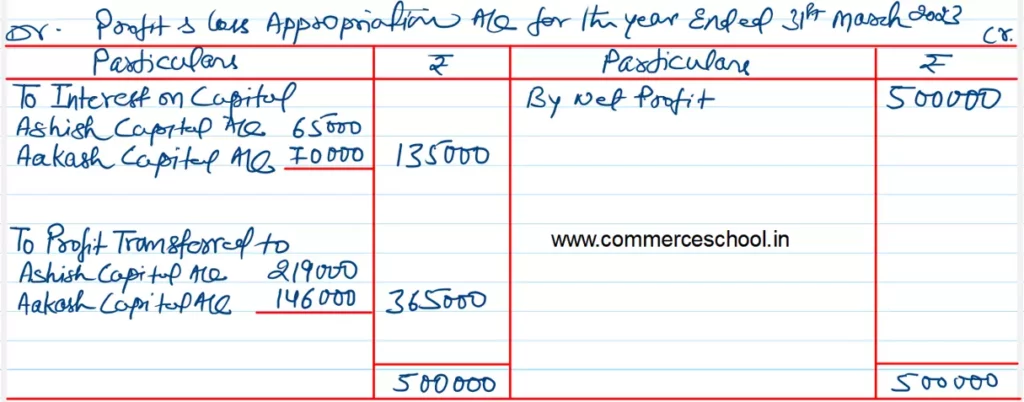 Dr. Profit & Loss Appropriation A/c for the year Ended 31st March 2023 Cr.
Particulars ₹ Particulars ₹
To Interest on Capital By Net Profit 500000
Ashish Capital A/c 65000
Aakash Capital A/c 70000 135000
To Profit Transferred to www.commerceschool.in
Ashish Capital A/c 219000
Aakash Capital A/c 146000 365000
500000 500000